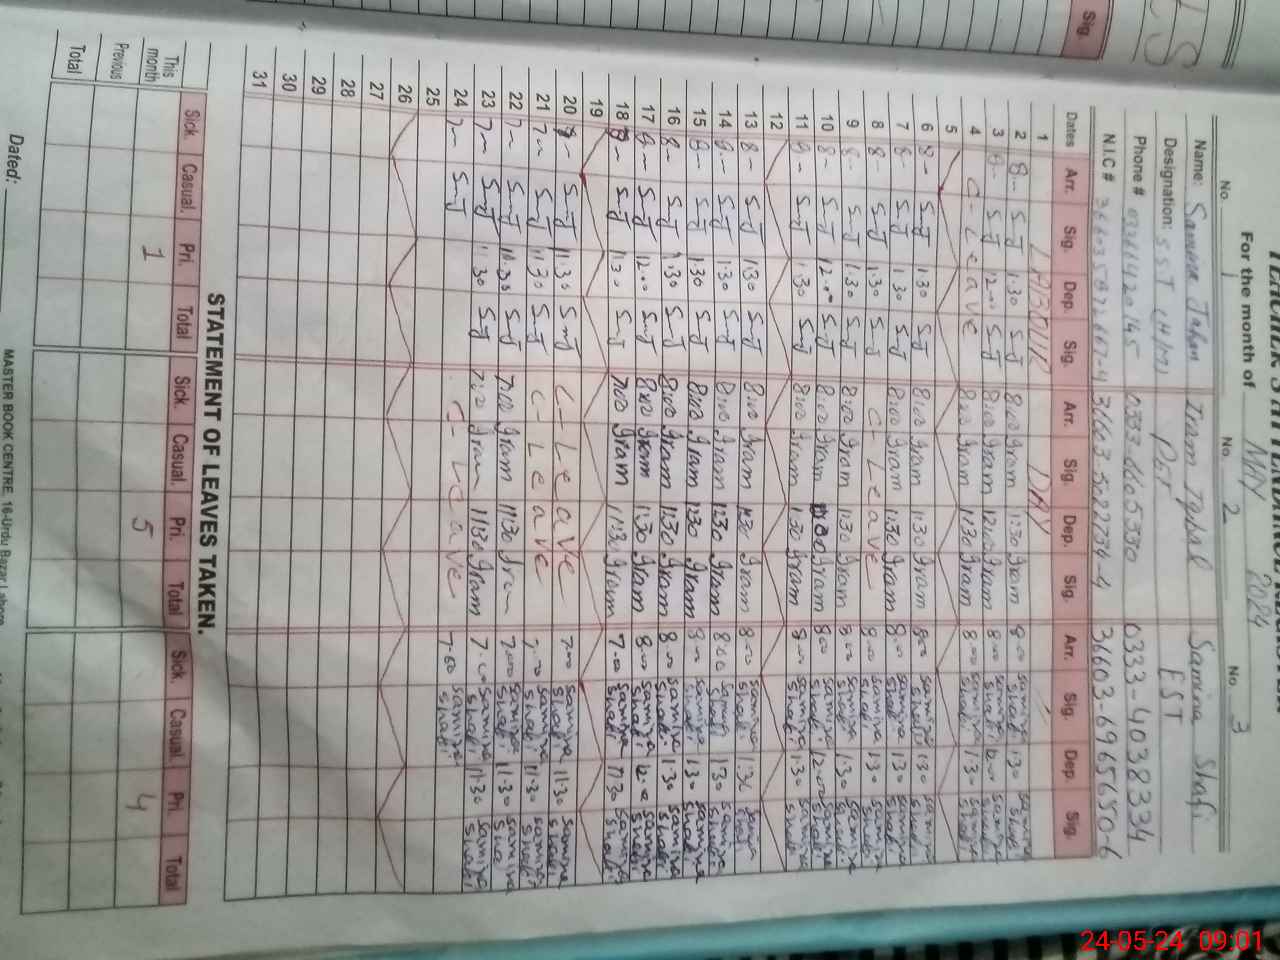 TEACHER'S ATTENDANCE REGISTER
For the month of MAY 2024
No. 1 No. 2 No 3
Name: Samina Jahan Iram Iqbal Samina Shafi
Designation: SST PET EST
Phone # 0333-6605330 0333-4038334
N.I.C # 36603-6965650-6
Dates Arr. Sig. Dep. Sig. Arr. Sig. Dep. Sig. Arr. Sig. Dep. Sig.
1 LABOUR DAY
2 8-- S-J 1:30 S-J 8:00 Iram 1:30 Iram 8:00 Samina Shafi 1:30 Samina Shafi
3 8-- S-J 12:00 S-J 8:00 Iram 12:00 Iram 8:00 Samina Shafi 12:00 Samina Shafi
4 C-Leave 8:00 Iram 1:30 Iram 8:00 Samina Shafi 1:30 Samina Shafi
5
6 8-- S-J 1:30 S-J 8:00 Iram 1:30 Iram 8:00 Samina Shafi 1:30 Samina Shafi
7 8-- S-J 1:30 S-J 8:00 Iram 1:30 Iram 8:00 Samina Shafi 1:30 Samina Shafi
8 8-- S-J 1:30 S-J C-Leave 8:00 Samina Shafi 1:30 Samina Shafi
9 8-- S-J 1:30 S-J 8:00 Iram 1:30 Iram 8:00 Samina Shafi 1:30 Samina Shafi
10 8-- S-J 12:00 S-J 8:00 Iram Iram 8:00 Samina Shafi 12:00 Samina Shafi
11 8-- S-J 1:30 S-J 8:00 Iram 1:30 Iram 8:00 Samina Shafi 1:30 Samina Shafi
12
13 8-- S-J 1:30 S-J 8:00 Iram 1:30 Iram 8:00 Samina Shafi 1:30 Samina Shafi
14 8-- S-J 1:30 S-J 8:00 Iram 1:30 Iram 8:00 Samina Shafi 1:30 Samina Shafi
15 8-- S-J 1:30 S-J 8:00 Iram 1:30 Iram 8:00 Samina Shafi 1:30 Samina Shafi
16 8-- S-J 1:30 S-J 8:00 Iram 1:30 Iram 8:00 Samina Shafi 1:30 Samina Shafi
17 8-- S-J 12:00 S-J 8:00 Iram 1:30 Iram 8:00 Samina Shafi 12:00 Samina Shafi
18 S-J 11:30 S-J 7:00 Iram 11:30 Iram 7:00 Samina Shafi 11:30 Samina Shafi
19
20 S-J 11:30 S-J C-Leave 7:00 Samina Shafi 11:30 Samina Shafi
21 7-- S-J 11:30 S-J C-Leave 7:00 Samina Shafi 11:30 Samina Shafi
22 7-- S-J 11:30 S-J 7:00 Iram 11:30 Iram 7:00 Samina Shafi 11:30 Samina Shafi
23 7-- S-J 11:30 S-J 7:00 Iram 11:30 Iram 7:00 Samina Shafi 11:30 Samina Shafi
24 7-- S-J C-Leave 7:00 Samina Shafi
25
26
27
28
29
30
31
STATEMENT OF LEAVES TAKEN.
Sick. Casual. Pri. Total Sick. Casual. Pri. Total Sick. Casual. Pri. Total
This month 1 5 4
Previous
Total
Dated:
MASTER BOOK CENTRE, 16-Urdu Bazar Lahore
Sig.
24-05-24 09:01